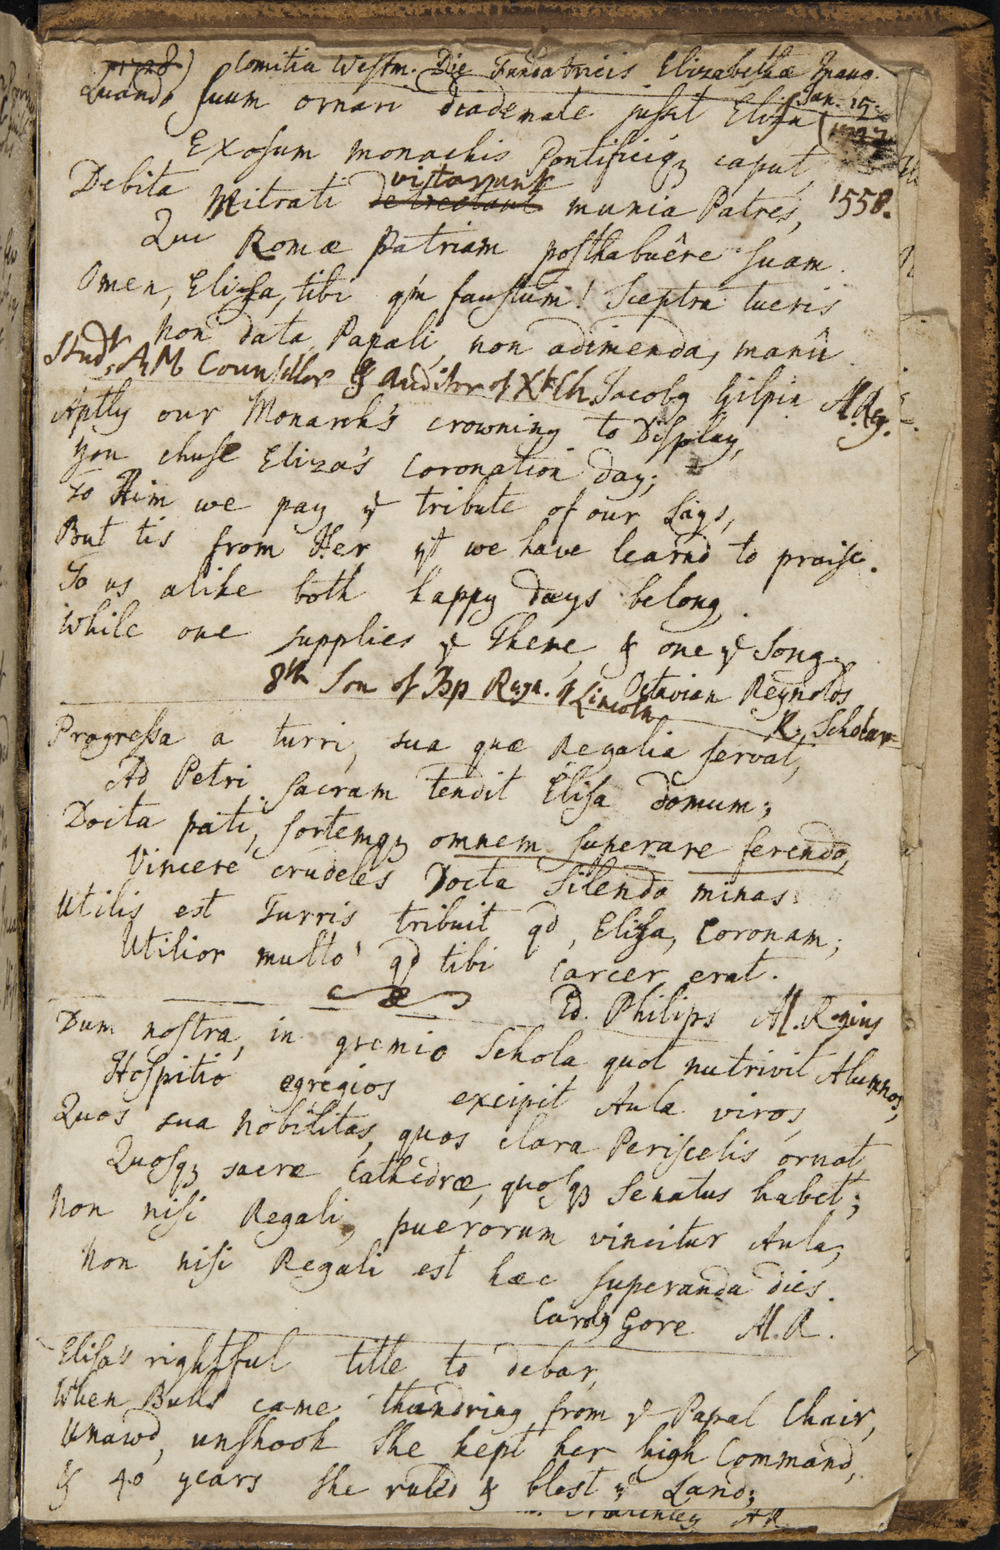 1728) Comitia Westm. Die Fundatricis Elizabethæ Inaug.
Jan. 15
Quando suum ornari diademate jussit Elisa (1727
Exosum monachis Pontificiq; caput,
1558.
vitarunt
Debita Mitrati detrectant munia Patres,
Qui Romæ patriam posthabuêre suam.
Omen, Elisa, tibi qm faustum! Sceptra tueris
Non data Papali, non adimenda, manû.
Studt. AM Counsellor & Auditor of Xt Ch. Jacobq Gilpin Al. Reg.
Aptly our Monarch's crowning to Display,
You chuse Eliza's Coronation day;
To Him we pay ye tribute of our Lays,
But tis from Her yt we have learnd to praise.
To us alike both happy days belong,
While one supplies ye Theme, & one ye Song.
8th Son of Bp Reyn. of Lincoln Octavian Reynolds
R. Scholar
Progressa a turri, sua quæ Regalia servat,
Ad Petri sacram tendit Elisa domum;
Docta pati, sortemq; omnem superare ferendo,
Vincere crudeles Docta silendo minas:
Utilis est Turris tribuit qd, Elisa, Coronam;
Utilior multo qd tibi Carcer erat.
Ed. Philips Al. Regius
Dum nostra, in gremio Schola quot nutrivit Alumnos,
Hospitio egregios excipit Aula viros,
Quos sua Nobilitas, quos clara Periscelis ornat,
Quosq; sacræ Cathedræ, quosq; Senatus habet;
Non nisi Regali, puerorum vincitur Aula,
Non nisi Regali est hæc superanda dies.
Carolq Gore Al. R.
Elisa's rightful title to debar,
When Bulls came thundring from ye Papal Chair,
Unawd, unshook She kept her high Command,
& 40 years She ruled & blest ye Land;
AR